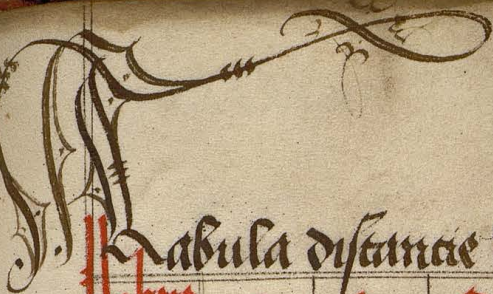 Tabula distancie